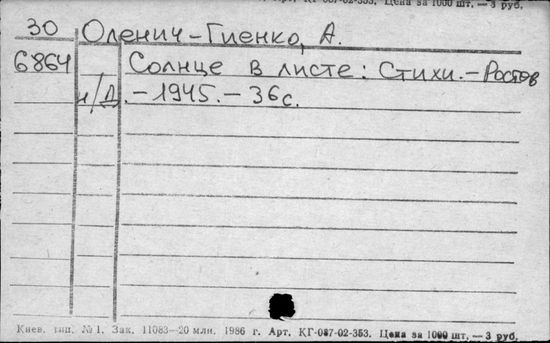 Арт. КГ-087-02-353. Цена за 1000 шт. — 3 руб.
30 Оленич-Гненко, А.
6864 Солнце в листе: Стихи. – Ростов
н/Д. – 1945. – 36 с.
Киев. тип. №1. Зак. 11083—20 млн. 1986 г. Арт. КГ-087-02-353. Цена за 1000 шт. — 3 руб.